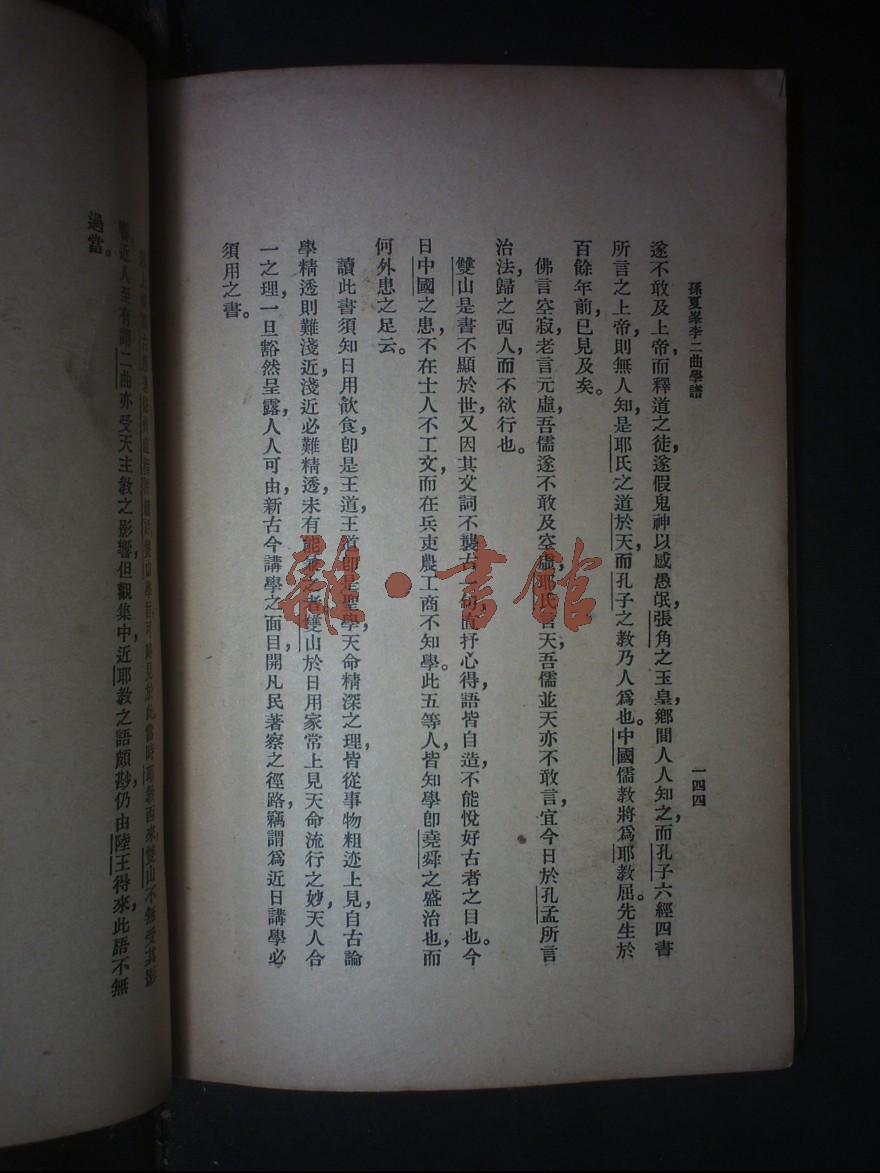 孫夏峯李二曲學譜
一四四
遂不敢及上帝而釋道之徒遂假鬼神以惑愚氓，張角之玉皇，鄉間人人知之，而孔子六經四書
所言之上帝，則無人知，是耶氏之道於天，而孔子之教乃人爲也。中國儒教將爲耶教屈。先生於
百餘年前，已見及矣。
佛言空寂，老言元虛，吾儒遂不敢及空虛，耶氏言天，吾儒並天亦不敢言，宜今日於孔孟所言
治法，歸之西人，而不欲行也。
雙山是書不顯於世，又因其文詞不襲古一句，直抒心得，語皆自造，不能悅好古者之目也。今
日中國之患，不在士人不工文，而在兵吏農工商不知學。此五等人，皆知學，卽堯舜之盛治也，而
何外患之足云。
讀此書須知日用飲食，卽是王道，王道卽是聖學，天命精深之理，皆從事物粗迹上見，自古論
學精透則難淺近，淺近必難精透，未有能兼之者。雙山於日用家常上見天命流行之妙，天人合
一之理，一旦豁然呈露，人人可由，新古今講學之面目，開凡民著察之徑路，竊謂爲近日講學必
須用之書。
雙山學
可
見於此，當時耶教西來，雙山不無受其影
響，近人至有謂二曲亦受天主教之影響，但觀集中近耶教之語頗尠，仍由陸王得來，此語不無
過當。
雜·書館